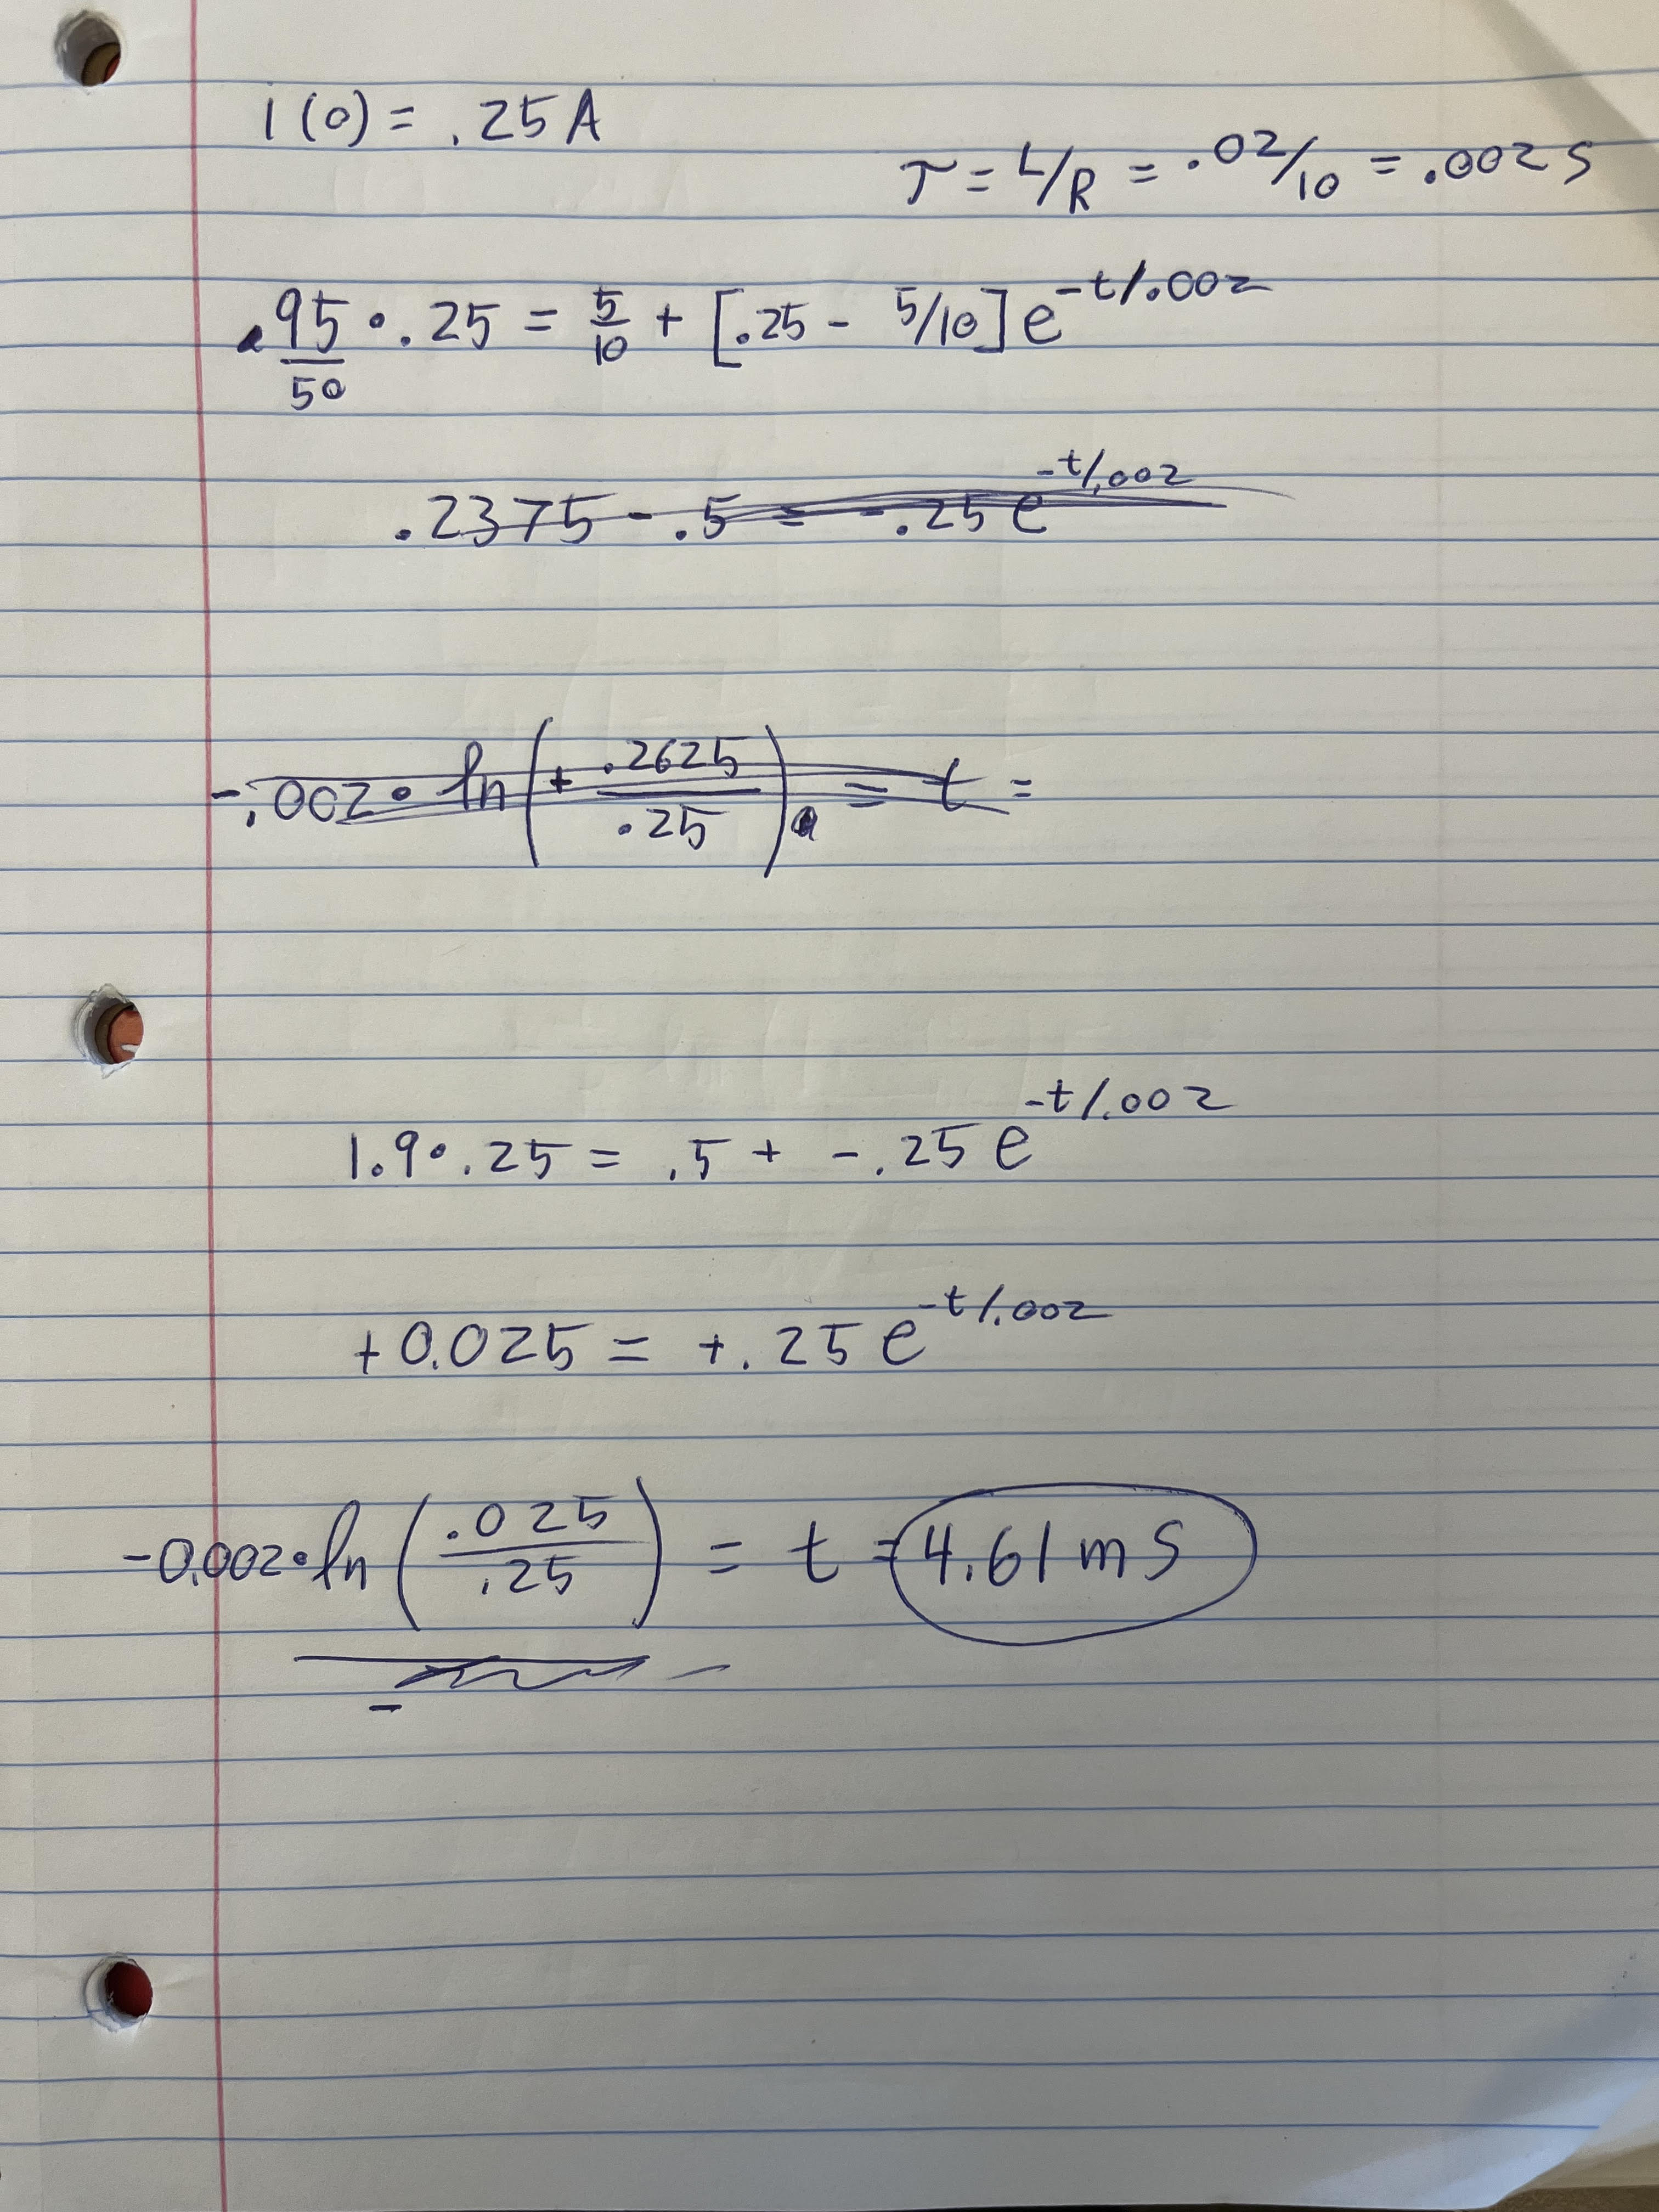 i(0) = .25A
τ = L/R = .02/10 = .002 s
95/50 • .25 = 5/10 + [.25 - 5/10] e^-t/.002
.2375 - .5 = -.25 e^-t/.002
-.002 • ln(+ .2625/.25) = t =
1.9 • .25 = .5 + -.25 e^-t/.002
+0.025 = +.25 e^-t/.002
-0.002 • ln(.025/.25) = t = 4.61 ms